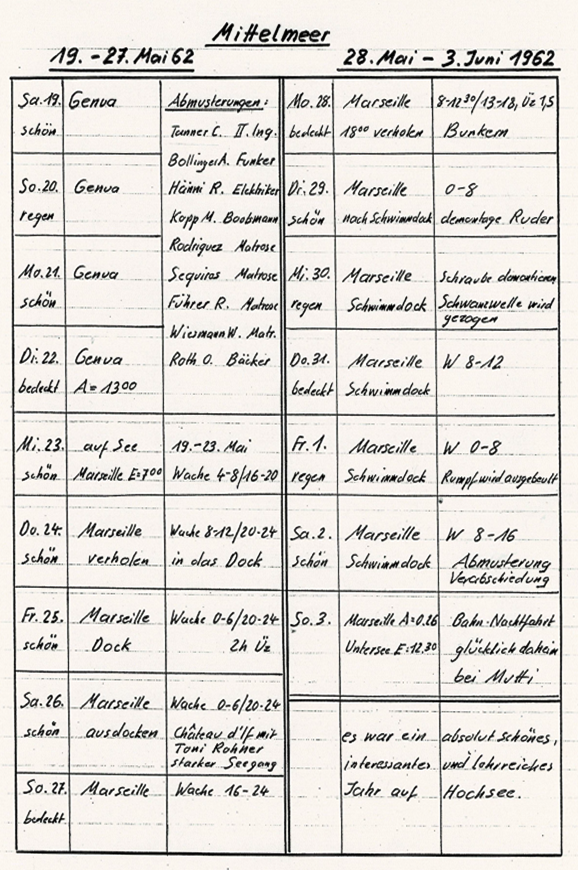 Mittelmeer
19. - 27. Mai 62
28. Mai - 3. Juni 1962
Sa. 19. Genua
schön
Abmusterungen:
Tanner C. II. Ing.
Bollinger A. Funker
Hänni R. Elektriker
Kopp M. Bootsmann
Rodriguez Matrose
Sequiros Matrose
Führer R. Matrose
Wiesmann W. Matr.
Roth O. Bäcker
So. 20. Genua
regen
Mo. 21. Genua
schön
Di. 22. Genua
bedeckt A = 13⁰⁰
Mi. 23. auf See 19.-23. Mai
schön Marseille E=7⁰⁰ Wache 4-8/16-20
Do. 24. Marseille Wache 8-12/20-24
schön verholen in das Dock
Fr. 25. Marseille Wache 0-6/20-24
schön Dock 2h Üz
Sa. 26. Marseille Wache 0-6/20-24
schön ausdocken Château d'If mit
Toni Rohner
starker Seegang
So. 27. Marseille Wache 16-24
bedeckt
Mo. 28. Marseille 8-12³⁰/13-18, Üz 1,5
bedeckt 18⁰⁰ verholen Bunkern
Di. 29. Marseille 0-8
schön nach Schwimmdock demontage Ruder
Mi. 30. Marseille Schraube demontieren
regen Schwimmdock Schwanzwelle wird
gezogen
Do. 31. Marseille W 8-12
bedeckt Schwimmdock
Fr. 1. Marseille W 0-8
regen Schwimmdock Rumpf wird ausgebeult
Sa. 2. Marseille W 8-16
schön Schwimmdock Abmusterung
Verabschiedung
So. 3. Marseille A=0.26 Bahn-Nachtfahrt
Untersee E=12.30 glücklich daheim
bei Mutti
es war ein absolut schönes,
interessantes und lehrreiches
Jahr auf Hochsee.